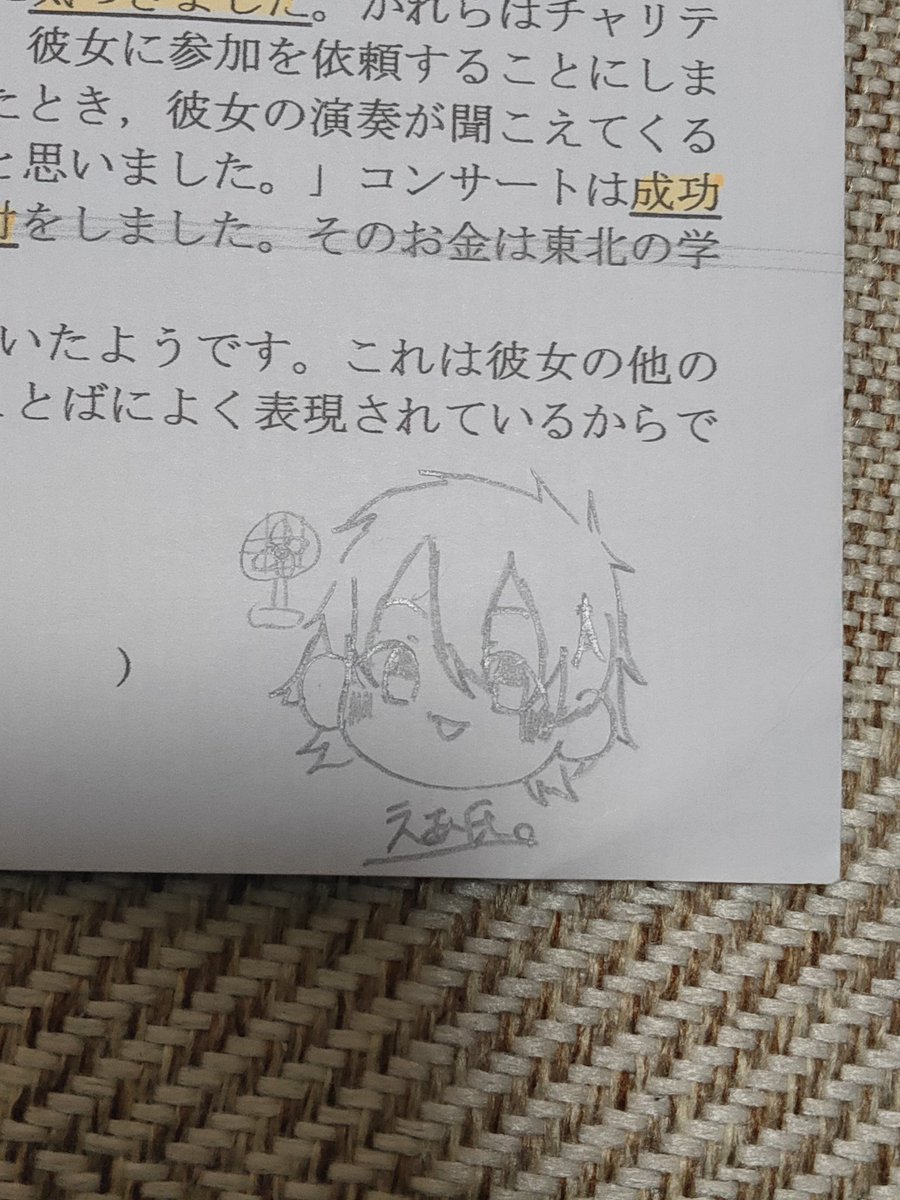 きました。かれらはチャリテ
彼女に参加を依頼することにしま
たとき，彼女の演奏が聞こえてくる
と思いました。」コンサートは成功
をしました。そのお金は東北の学
いたようです。これは彼女の他の
ことばによく表現されているからで
）
えあ氏。